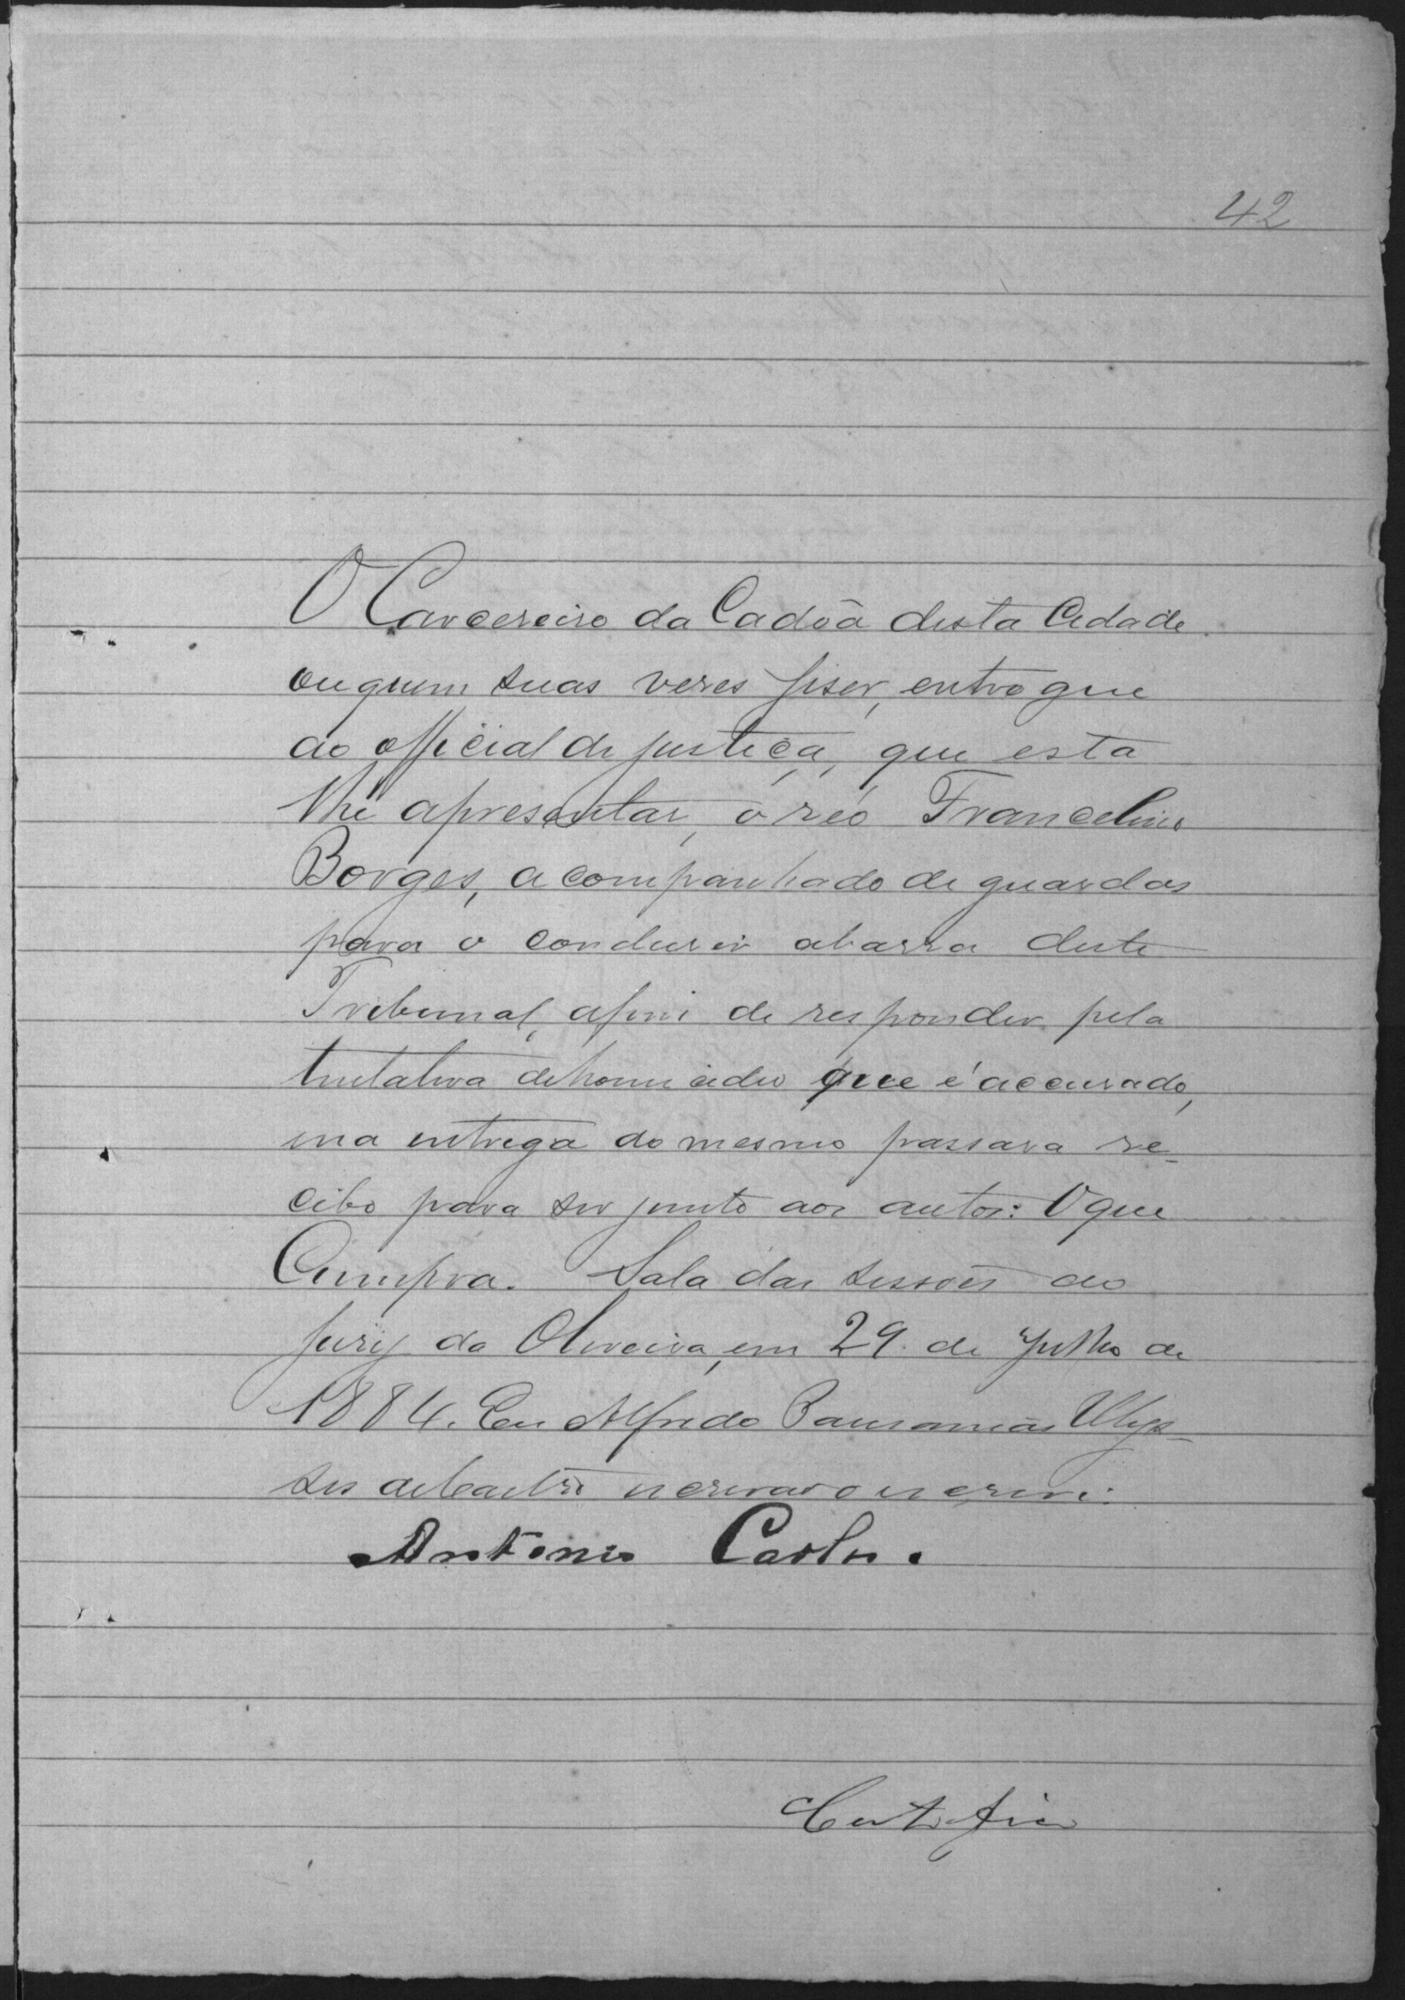 42
O Carcereiro da Cadêa desta Cidade
ou quem suas veses fiser, entregue
ao official de justiça, que esta
lhe apresentar, o réo Francelino
Borges, acompanhado de guardas
para o condusir abarra deste
Tribunal, afim de responder pela
tentativa de homicidio que é accusado,
e na entrega do mesmo passará re-
cibo para ser junto aos autos: O que
Cumpra. Sala das sessões do
Jury da Oliveira, em 29 de Julho de
1884. Eu Alfredo Pausanias Ulys-
ses de Castro escrivão escrevi:
Antonio Carlos.
Certifico